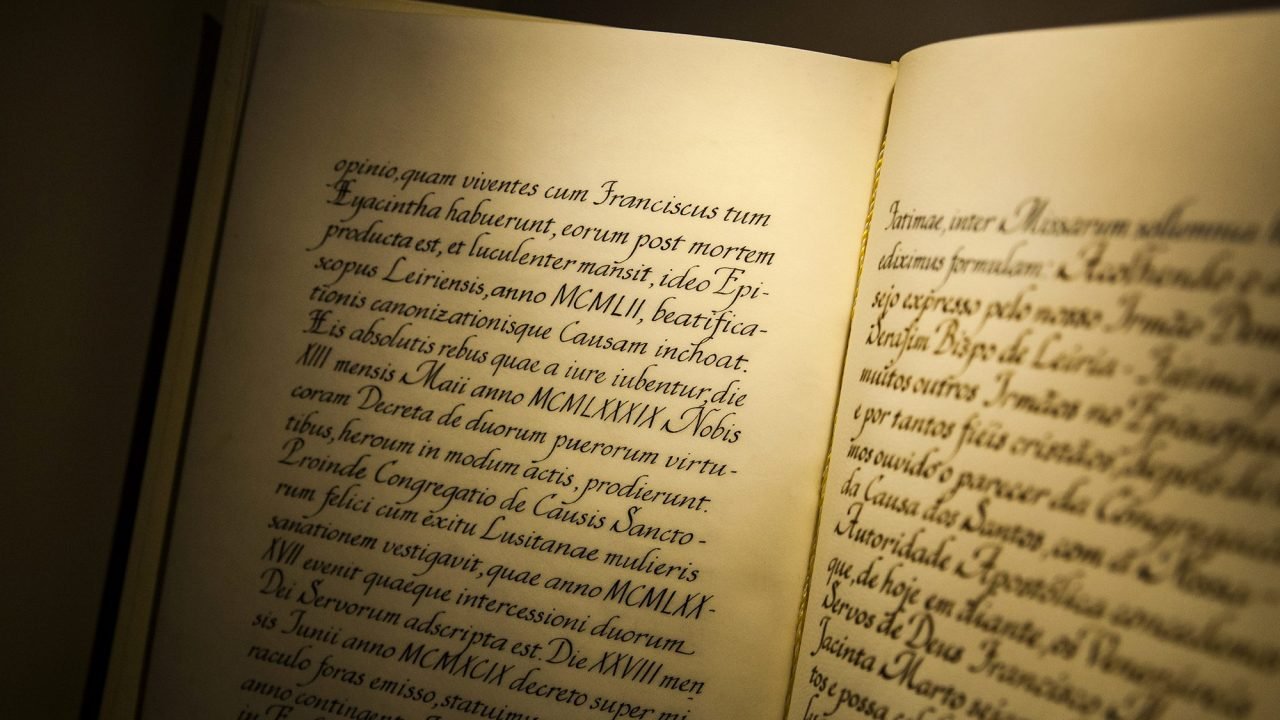 opinio, quam viventes cum Franciscus tum
Hyacintha habuerunt, eorum post mortem
producta est, et luculenter mansit, ideo Epi-
scopus Leiriensis, anno MCMLII, beatifica-
tionis canonizationisque Causam inchoat.
His absolutis rebus quae a iure iubentur, die
XIII mensis Maii anno MCMLXXXIX Nobis
coram Decreta de duorum puerorum virtu-
tibus, heroum in modum actis, prodierunt.
Proinde Congregatio de Causis Sancto-
rum felici cum exitu Lusitanae mulieris
sanationem vestigavit, quae anno MCMLXX-
XVII evenit quaeque intercessioni duorum
Dei Servorum adscripta est. Die XXVIII men
sis Iunii anno MCMXCIX decreto super mi
raculo foras emisso, statuimu
anno contingent
Fatimae, inter Missarum sollemnia
ediximus formulam: Acolhendo o
sejo expresso pelo nosso Irmão
Serafim Bispo de Leiria - Fatima
muitos outros Irmãos no
e por tantos fiéis cristãos, depois
mos ouvido o parecer da
da Causa dos Santos, com a Nossa
Autoridade Apostólica
que, de hoje em diante, os
Servos de Deus Francisco
Jacinta Marto
tos e possa